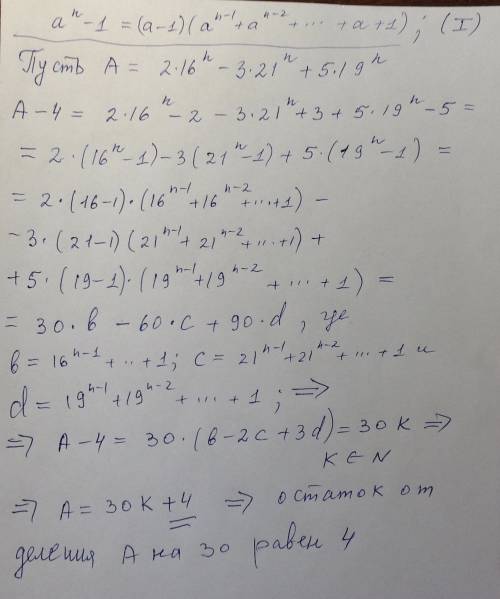 aⁿ-1 = (a-1)(aⁿ⁻¹+aⁿ⁻²+...+a+1); (I)
Пусть A = 2·16ⁿ-3·21ⁿ+5·19ⁿ
A-4 = 2·16ⁿ-2-3·21ⁿ+3+5·19ⁿ-5=
= 2·(16ⁿ-1)-3(21ⁿ-1)+5·(19ⁿ-1) =
= 2·(16-1)·(16ⁿ⁻¹+16ⁿ⁻²+...+1) -
-3·(21-1)(21ⁿ⁻¹+21ⁿ⁻²+...+1)+
+5·(19-1)·(19ⁿ⁻¹+19ⁿ⁻²+...+1) =
= 30·b - 60·c + 90·d, где
b = 16ⁿ⁻¹+..+1; c = 21ⁿ⁻¹+21ⁿ⁻²+...+1 и
d = 19ⁿ⁻¹+19ⁿ⁻²+...+1; ⇒
⇒ A-4 = 30·(b-2c+3d) = 30k ⇒
k∈N
⇒ A = 30k+4 ⇒ остаток от
деления A на 30 равен 4